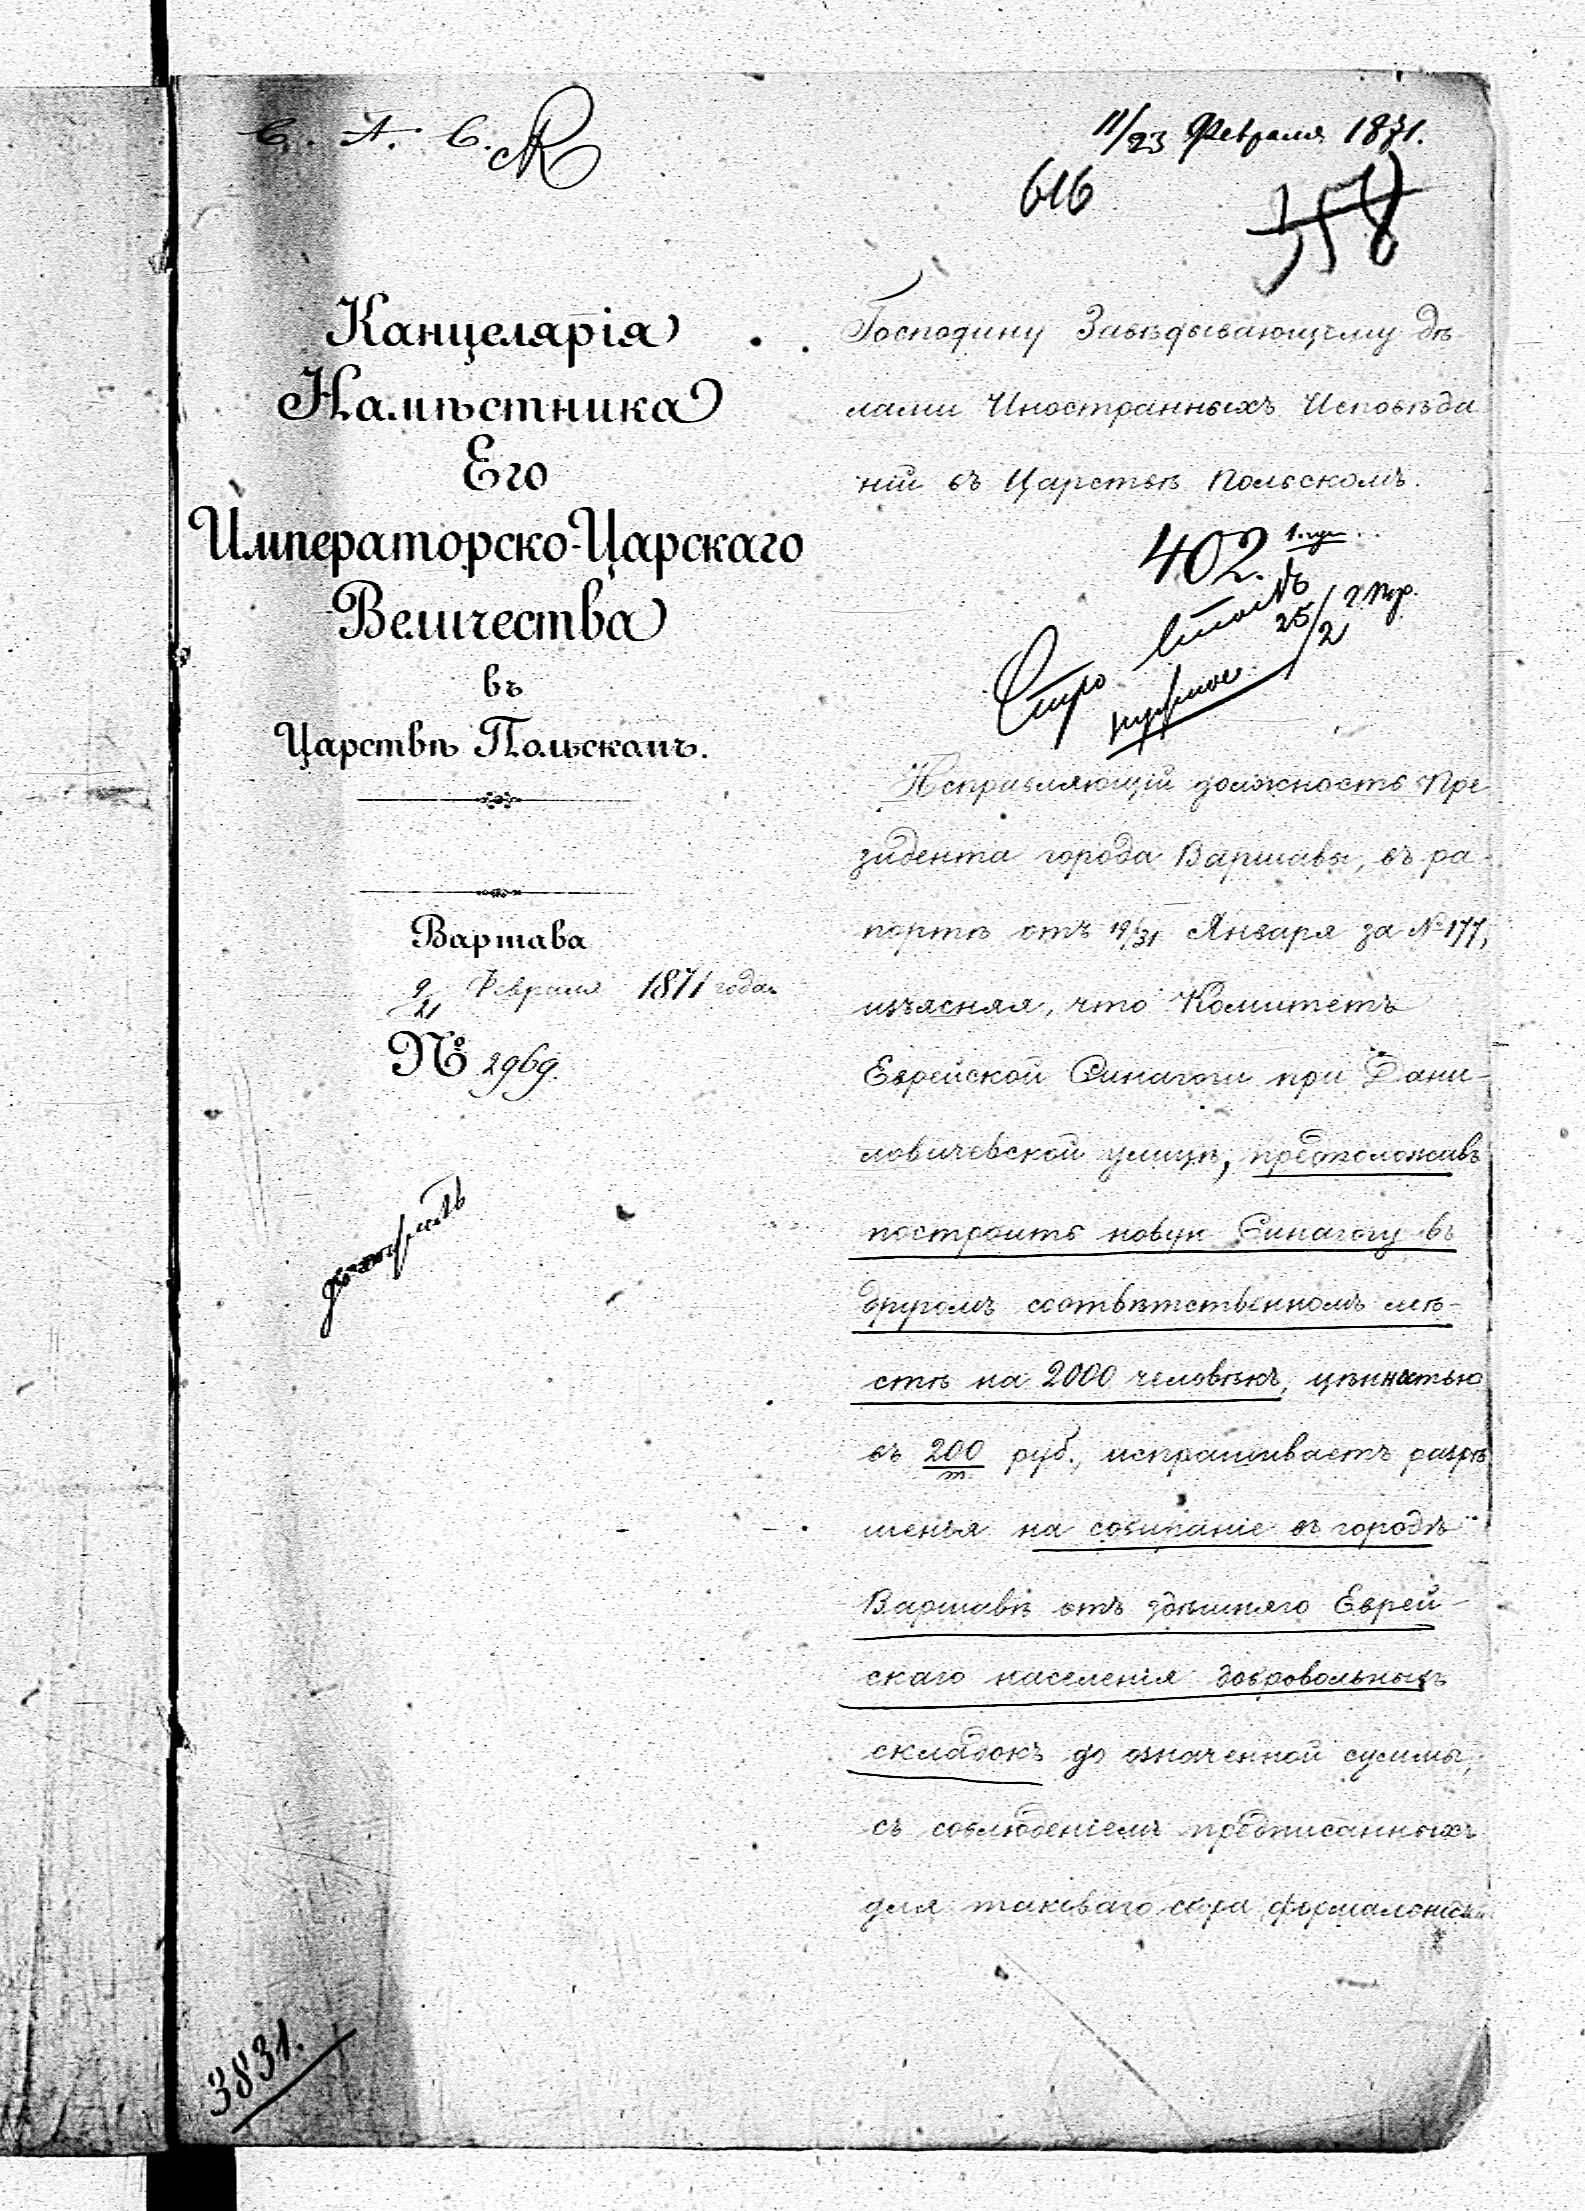 С. А. С.
11/23 Февраля 1871.
616
358
Канцелярія
Намѣстника
Его
Императорско-Царскаго
Величества
въ
Царствѣ Польскомъ.
Варшава
9/21 Февраля 1871 года
№ 2969.
3831.
Господину Завѣдывающему дѣ-
лами Иностранныхъ Исповѣда
ній въ Царствѣ Польскомъ.
402.
25/2
Исправляющій должность Пре
зидента города Варшавы, въ ра-
портѣ отъ 19/31 Января за № 177,
изъясняя, что Комитетъ
Еврейской Синагоги при Дани-
ловичевской улицѣ, предположивъ
построить новую Синагогу въ
другомъ соотвѣтственномъ мѣ-
стѣ на 2000 человѣкъ, цѣнностью
въ 200/т. руб., испрашиваетъ разрѣ
шенія на собираніе въ городѣ
Варшавѣ отъ здѣшняго Еврей-
скаго населенія добровольныхъ
складокъ до означенной суммы,
съ соблюденіемъ предписанныхъ
для таковаго сбора формальностей